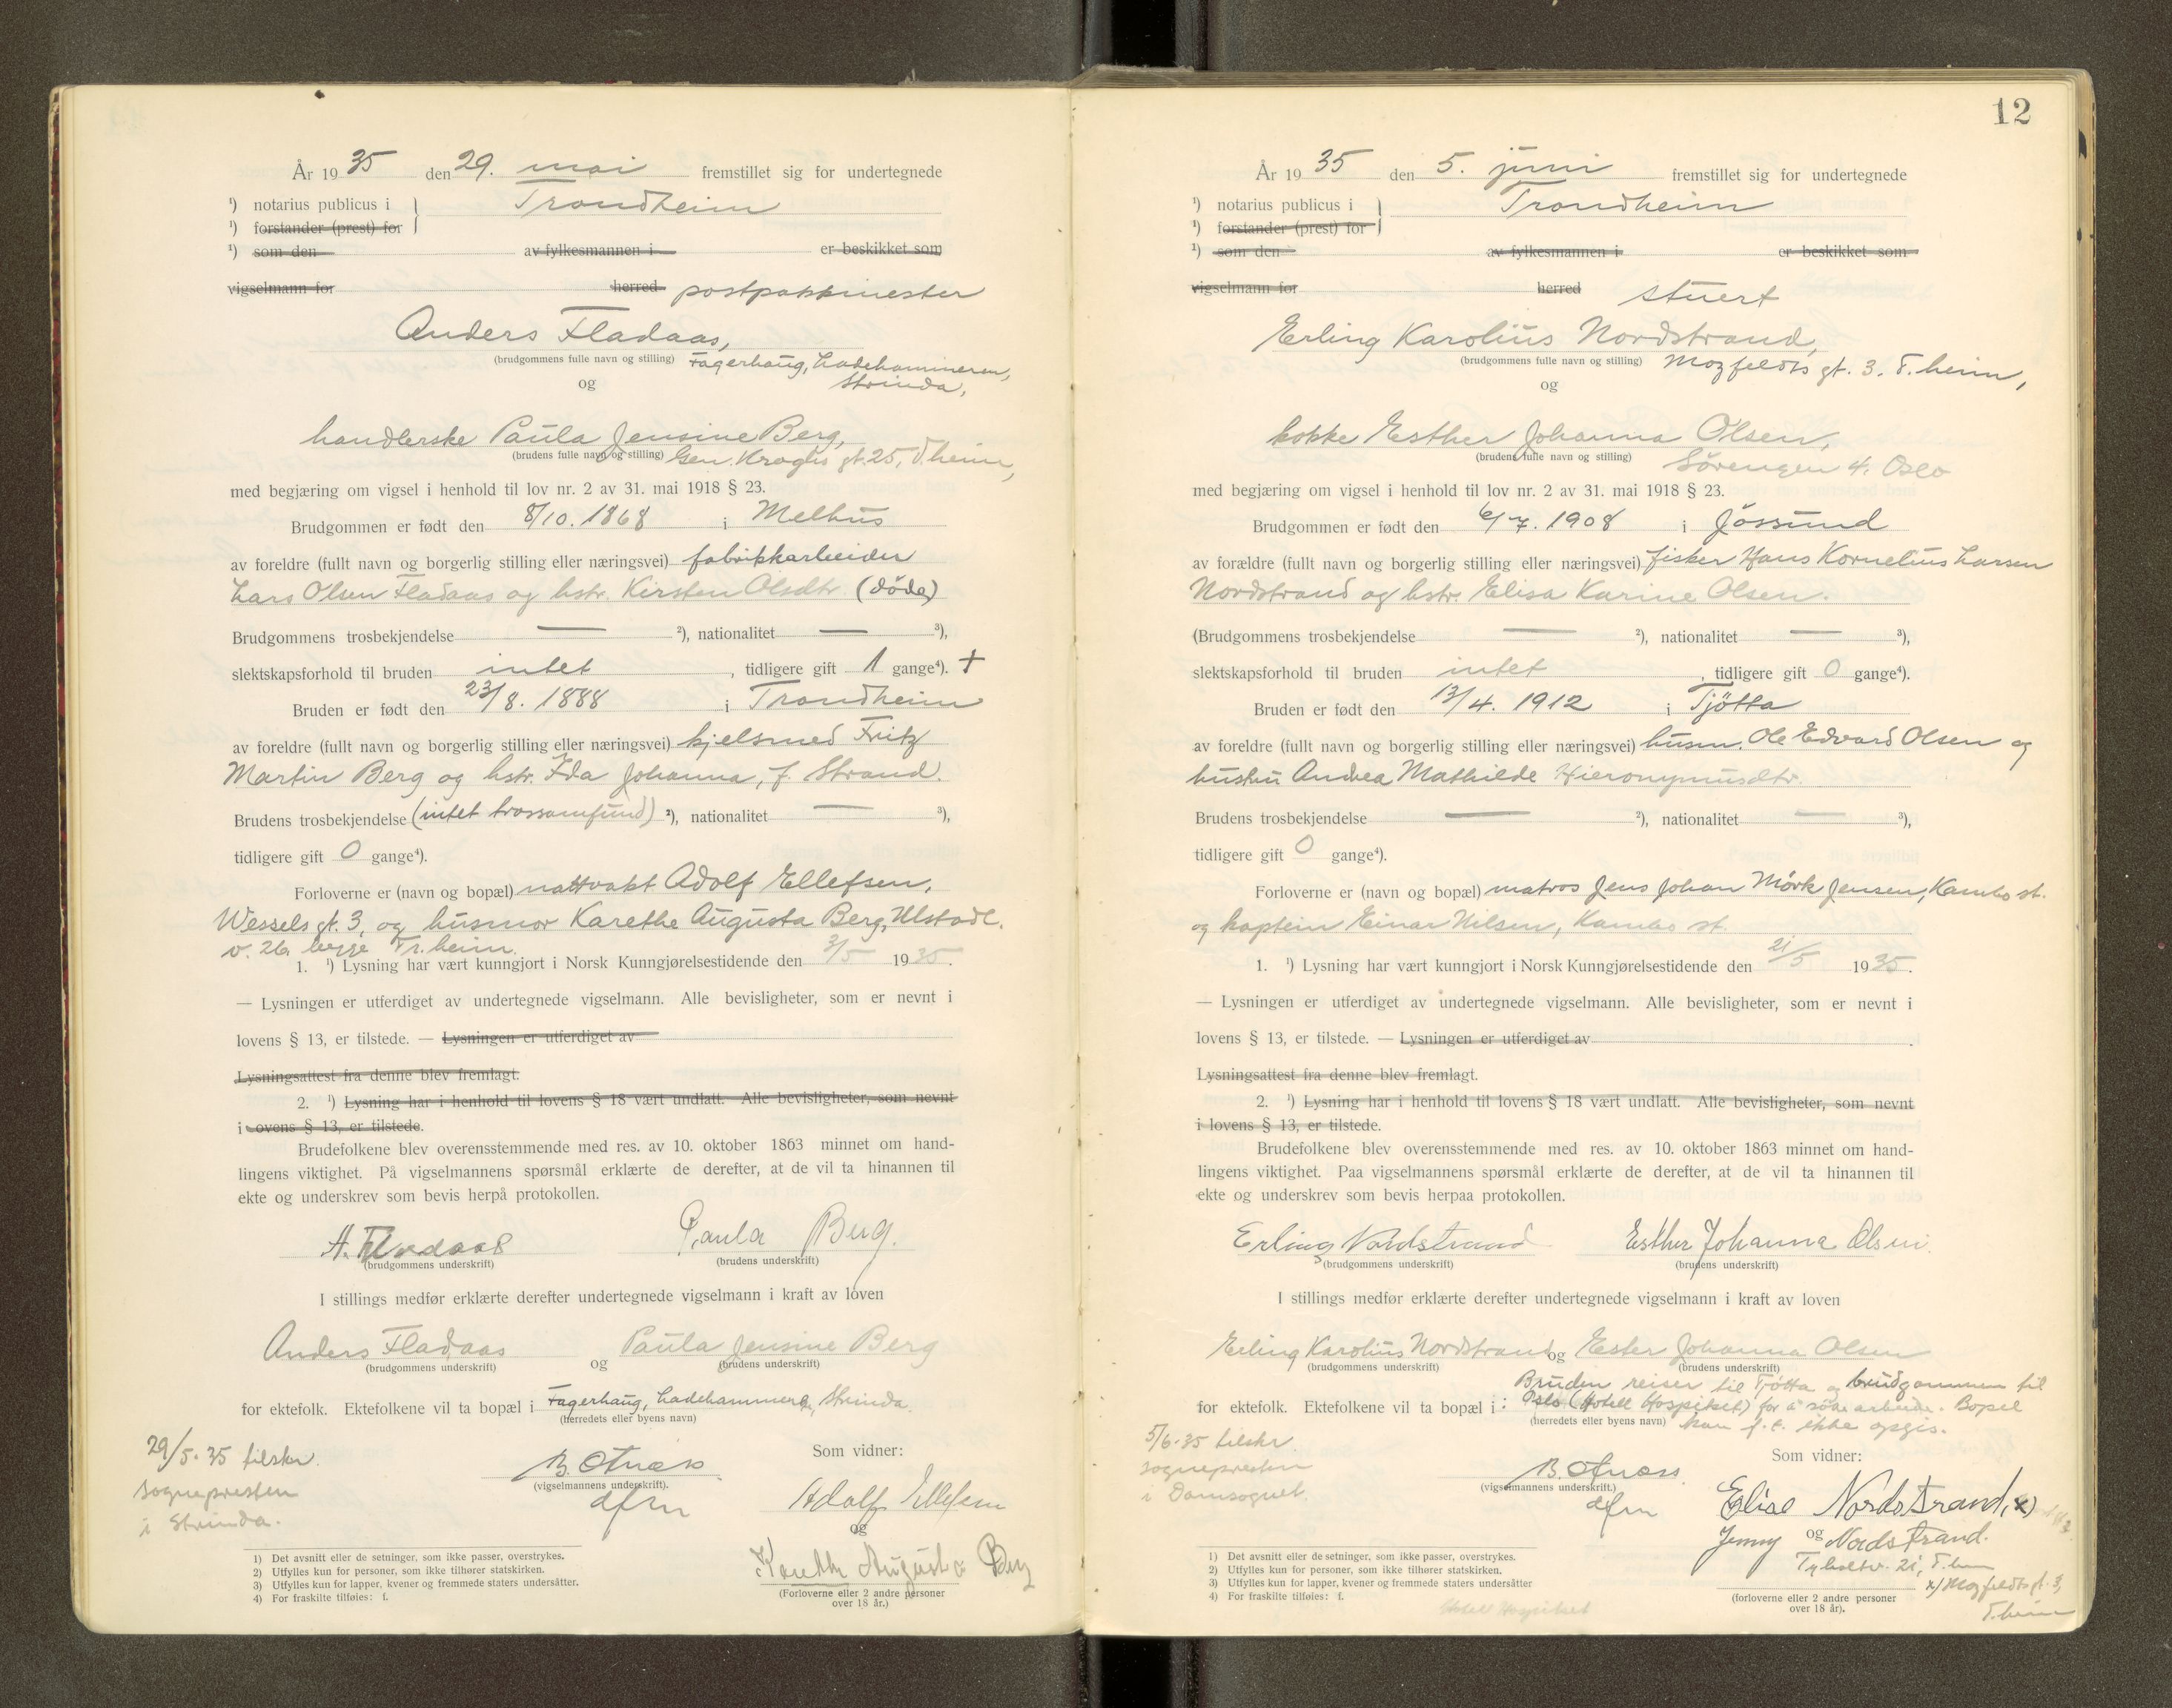 År 1935 den 29. mai fremstillet sig for undertegnede
¹) notarius publicus i Trondheim
¹) forstander (prest) for
¹) som den av fylkesmannen i er beskikket som
vigselmann for herred postpakkmester
Anders Fladaas,
(brudgommens fulle navn og stilling) Fagerhaug, Ladehammeren,
og Strinda,
handlerske Paula Jensine Berg,
(brudens fulle navn og stilling) Gen. Kroghs gt. 25, T.heim,
med begjæring om vigsel i henhold til lov nr. 2 av 31. mai 1918 § 23.
Brudgommen er født den 8/10. 1868 i Melhus
av foreldre (fullt navn og borgerlig stilling eller næringsvei) fabrikkarbeider
Lars Olsen Fladaas og hstr. Kirsten Olsdtr. (døde)
Brudgommens trosbekjendelse — ²), nationalitet — ³),
slektskapsforhold til bruden intet, tidligere gift 1 gange⁴). +
Bruden er født den 23/8. 1888 i Trondheim
av foreldre (fullt navn og borgerlig stilling eller næringsvei) kjelsmed Fritz
Martin Berg og hstr. Ida Johanna, f. Strand.
Brudens trosbekjendelse (intet trossamfund) ²), nationalitet — ³),
tidligere gift 0 gange⁴).
Forloverne er (navn og bopæl) nattvakt Adolf Ellefsen,
Wessels gt. 3, og husmor Karethe Augusta Berg, Ulstadl.
v. 26 begge Tr.heim.
1. ¹) Lysning har vært kunngjort i Norsk Kunngjørelsestidende den 3/5 1935.
— Lysningen er utferdiget av undertegnede vigselmann. Alle bevisligheter, som er nevnt i
lovens § 13, er tilstede. — Lysningen er utferdiget av
Lysningsattest fra denne blev fremlagt.
2. ¹) Lysning har i henhold til lovens § 18 vært undlatt. Alle bevisligheter, som nevnt
i lovens § 13, er tilstede.
Brudefolkene blev overensstemmende med res. av 10. oktober 1863 minnet om hand-
lingens viktighet. På vigselmannens spørsmål erklærte de derefter, at de vil ta hinannen til
ekte og underskrev som bevis herpå protokollen.
A. Fladaas Paula Berg.
(brudgommens underskrift) (brudens underskrift)
I stillings medfør erklærte derefter undertegnede vigselmann i kraft av loven
Anders Fladaas og Paula Jensine Berg
(brudgommens underskrift) (brudens underskrift)
for ektefolk. Ektefolkene vil ta bopæl i Fagerhaug, Ladehammeren, Strinda.
(herredets eller byens navn)
29/5-35 tilskr.
sognepresten
i Strinda.
Som vidner:
(vigselmannens underskrift).
dfm
Adolf Ellefsen
og
Karethe Augusta Berg
(Forloverne eller 2 andre personer
over 18 år.)
1) Det avsnitt eller de setninger, som ikke passer, overstrykes.
2) Utfylles kun for personer, som ikke tilhører statskirken.
3) Utfylles kun for lapper, kvener og fremmede staters undersåtter.
4) For fraskilte tilføies: f.
12
År 1935 den 5. juni fremstillet sig for undertegnede
¹) notarius publicus i Trondheim
¹) forstander (prest) for
¹) som den av fylkesmannen i er beskikket som
vigselmann for herred stuert
Erling Karolius Nordstrand,
(brudgommens fulle navn og stilling) Mozfeldts gt. 3. T.heim,
og
kokke Esther Johanna Olsen,
(brudens fulle navn og stilling) Sörengen 4. Oslo
med begjæring om vigsel i henhold til lov nr. 2 av 31. mai 1918 § 23.
Brudgommen er født den 6/7. 1908 i Jössund
av forældre (fullt navn og borgerlig stilling eller næringsvei) fisker Hans Kornelius Larsen
Nordstrand og hstr. Elisa Karine Olsen.
(Brudgommens trosbekjendelse — ²), nationalitet — ³),
slektskapsforhold til bruden intet, tidligere gift 0 gange⁴).
Bruden er født den 13/4. 1912 i Tjötta
av foreldre (fullt navn og borgerlig stilling eller næringsvei) husm. Ole Edvard Olsen og
hustru Andrea Mathilde Hieronymusdtr.
Brudens trosbekjendelse — ²), nationalitet — ³),
tidligere gift 0 gange⁴).
Forloverne er (navn og bopæl) matros Jens Johan Mörk Jensen, Kambo st.
og kaptein Einar Nilsen, Kambo st.
1. ¹) Lysning har vært kunngjort i Norsk Kunngjørelsestidende den 21/5 1935.
— Lysningen er utferdiget av undertegnede vigselmann. Alle bevisligheter, som er nevnt i
lovens § 13, er tilstede. — Lysningen er utferdiget av .
Lysningsattest fra denne blev fremlagt.
2. ¹) Lysning har i henhold til lovens § 18 vært undlatt. Alle bevisligheter, som nevnt
i lovens § 13, er tilstede.
Brudefolkene blev overensstemmende med res. av 10. oktober 1863 minnet om hand-
lingens viktighet. Paa vigselmannens spørsmål erklærte de derefter, at de vil ta hinannen til
ekte og underskrev som bevis herpaa protokollen.
Erling Nordstrand Esther Johanna Olsen.
(brudgommens underskrift) (brudens underskrift)
I stillings medfør erklærte derefter undertegnede vigselmann i kraft av loven
Erling Karolius Nordstrand og Ester Johanna Olsen
(brudgommens underskrift) (brudens underskrift)
Bruden reiser til Tjötta og brudgommen til
for ektefolk. Ektefolkene vil ta bopæl i: Oslo (Hotell Hospitset) for å söke arbeide. Bopel
(herredets eller byens navn) kan f.t. ikke opgis.
5/6-35 tilskr.
sognepresten
i Domsognet.
Som vidner:
(vigselmannens underskrift.)
dfm
Elise Nordstrand, x)
Jenny og Nordstrand.
Tyholtv. 21, T.heim
x) Mozfeldts gt. 3,
T.heim
(forloverne eller 2 andre personer
over 18 år).
1) Det avsnitt eller de setninger, som ikke passer, overstrykes.
2) Utfylles kun for personer, som ikke tilhører statskirken.
3) Utfylles kun for lapper, kvener og fremmede staters undersåtter
4) For fraskilte tilføies: f.
Hotell Hospitset